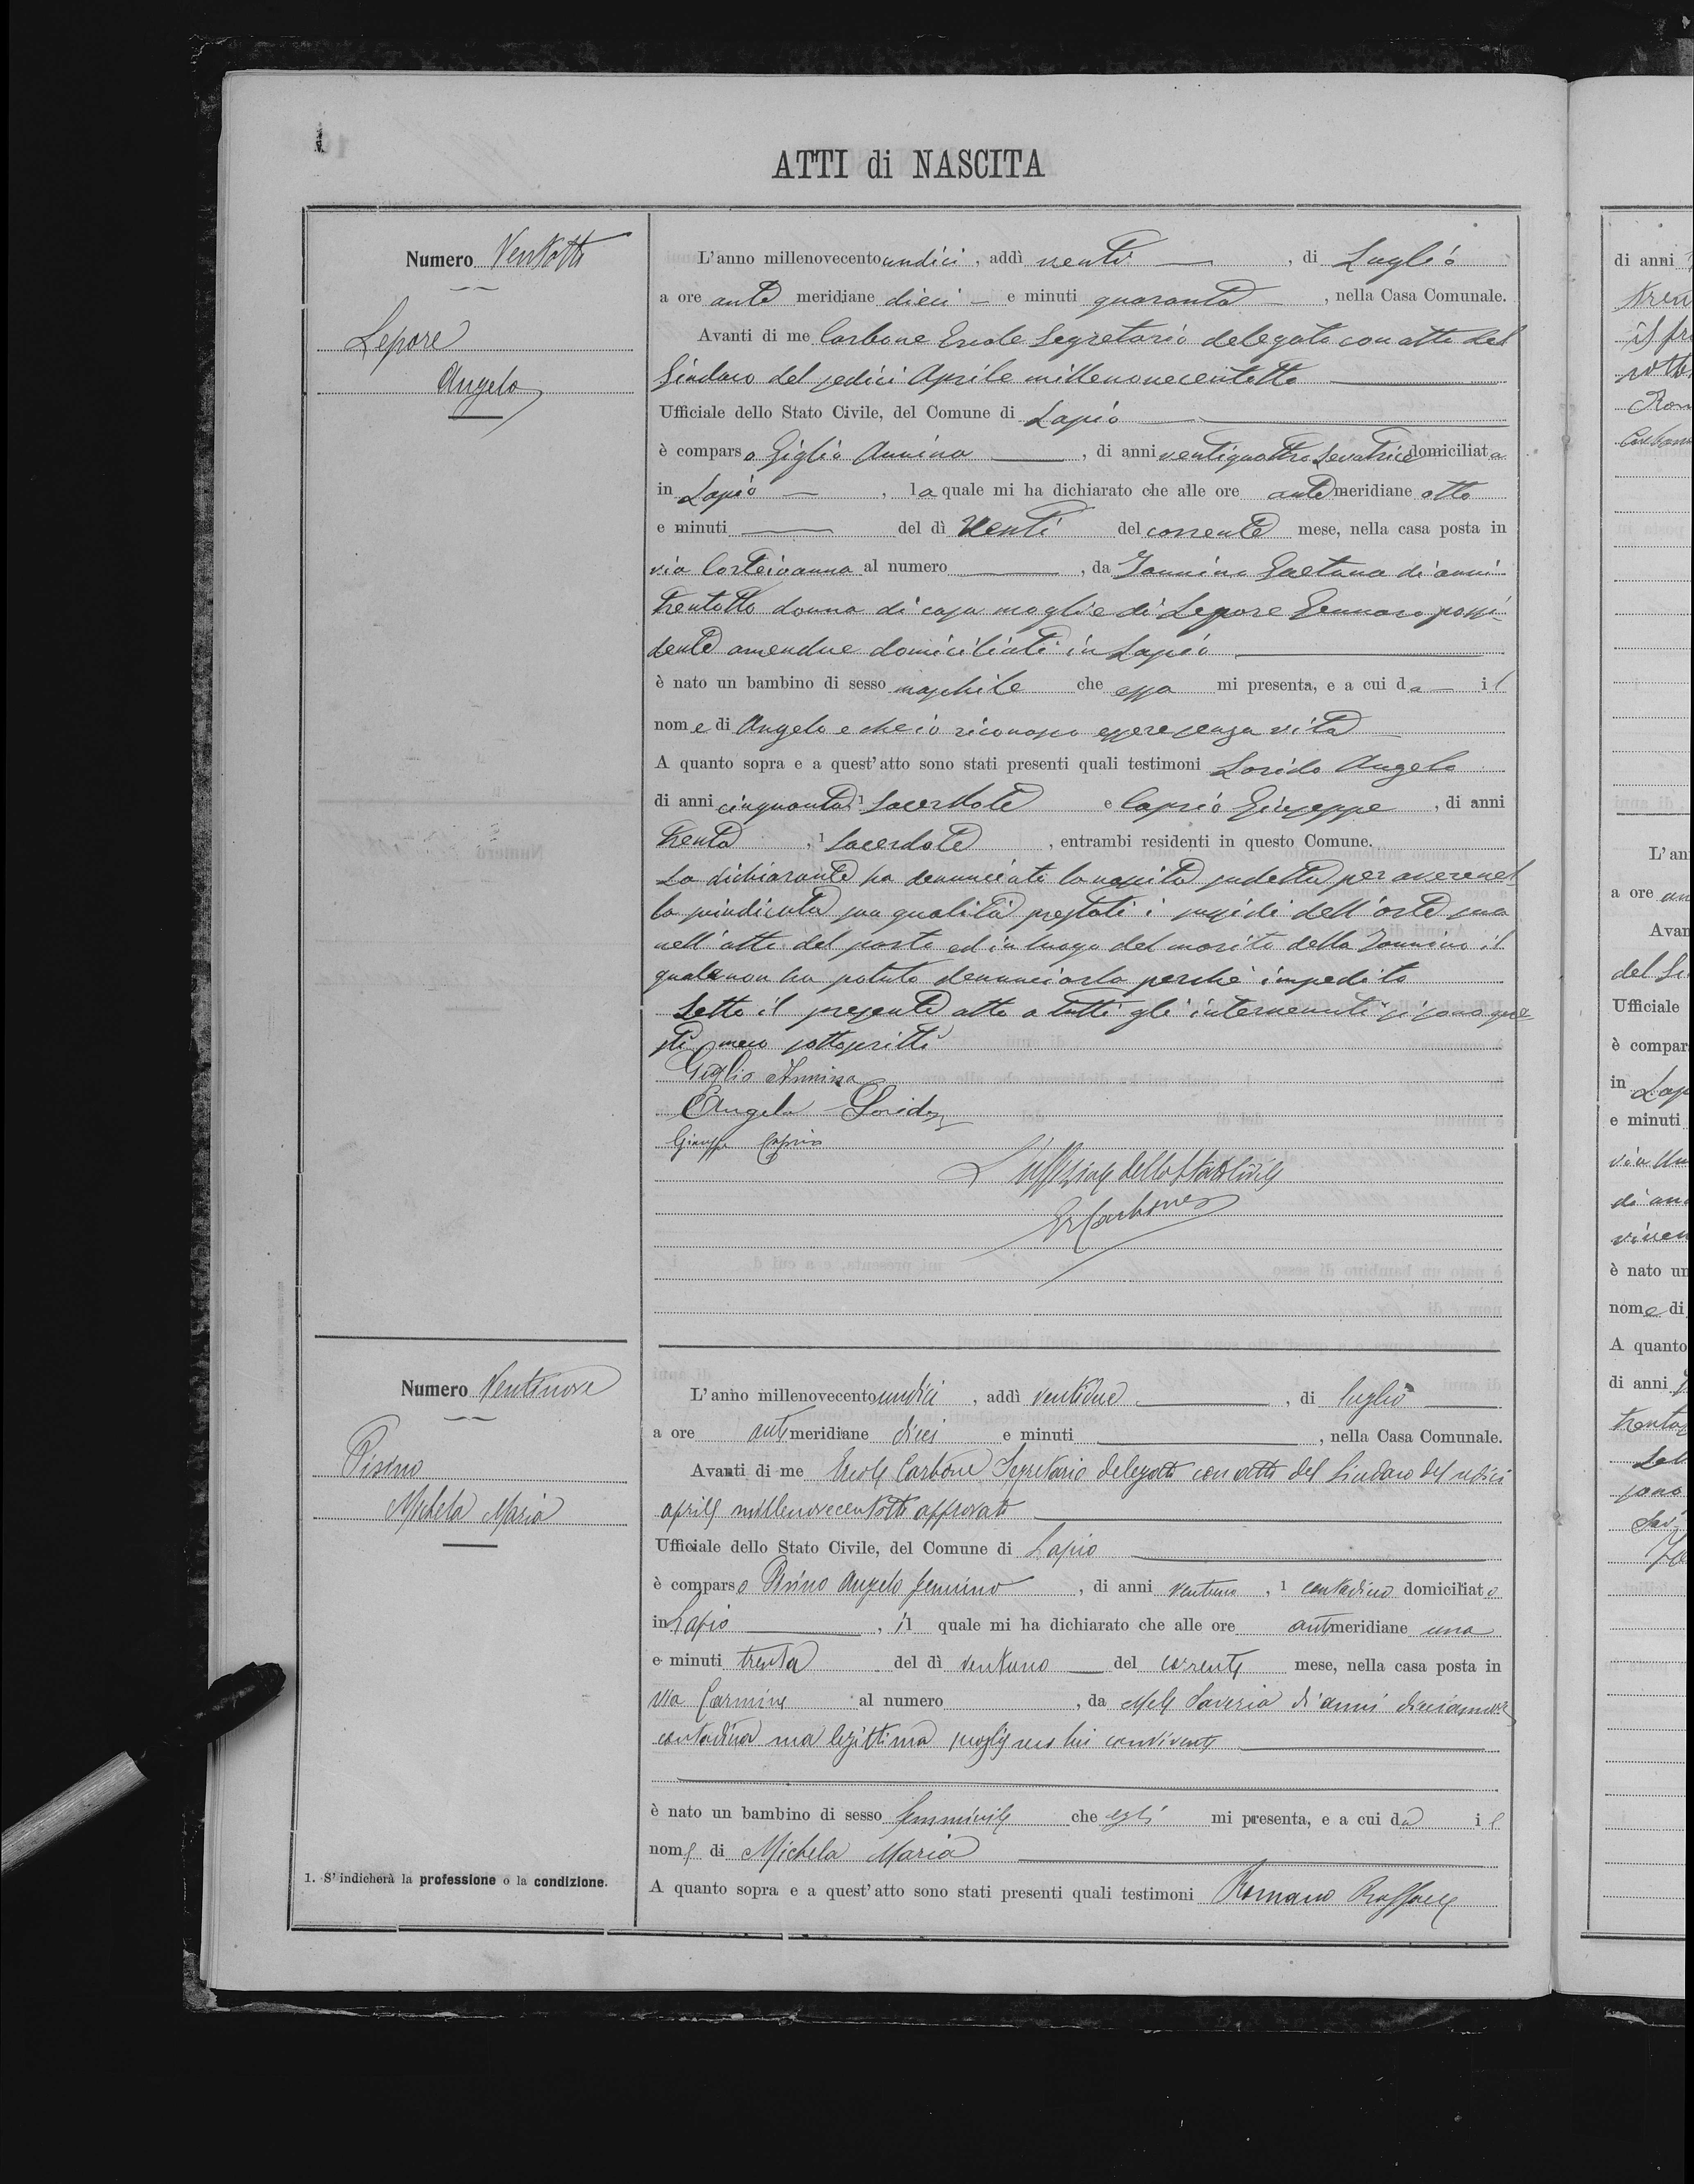 ATTI di NASCITA
Numero Ventotto
Lepore
Angelo
L'anno millenovecento undici, addì venti, di Luglio
a ore ante meridiane dieci e minuti quaranta, nella Casa Comunale.
Avanti di me Carbone Ercole Segretario delegato con atto del
Sindaco del sedici Aprile millenovecentotto
Ufficiale dello Stato Civile, del Comune di Lapio
è comparsa Giglio Annina, di anni ventiquattro Levatrice domiciliata
in Lapio, la quale mi ha dichiarato che alle ore antemeridiane otto
e minuti del dì venti del corrente mese, nella casa posta in
via al numero, da Iannino Gaetana di anni
trentotto donna di casa moglie di Lepore Gennaro possi-
dente amendue domiciliati in Lapio
è nato un bambino di sesso maschile che essa mi presenta, e a cui da il
nome di Angelo e che io riconosco essere senza vita
A quanto sopra e a quest'atto sono stati presenti quali testimoni Lorido Angelo
di anni cinquanta, 1 Sacerdote e Caprio Giuseppe, di anni
trenta, 1 Sacerdote, entrambi residenti in questo Comune.
La dichiarante ha denunciato la nascita sudetta per avere nel
la suindicata sua qualità prestati i sussidi dell'arte sua
nell'atto del parto ed in luogo del marito della Iannino il
quale non ha potuto denunciarla perchè impedito
Letto il presente atto a tutti gli intervenuti si sono que-
sti meco sottoscritti
Giglio Annina
Angelo Lorido
Giuseppe Caprio
L'uffiziale dello Stato Civile
Er Carbone
Numero Ventinove
Pisino
Michela Maria
L'anno millenovecento undici, addì ventidue, di luglio
a ore antimeridiane dieci e minuti, nella Casa Comunale.
Avanti di me Ercole Carbone Segretario delegato con atto del Sindaco del sedici
aprile millenovecentotto approvato
Ufficiale dello Stato Civile, del Comune di Lapio
è comparso Pisino Angelo, di anni ventuno, 1 contadino domiciliato
in Lapio, il quale mi ha dichiarato che alle ore antimeridiane una
e minuti trenta del dì ventuno del corrente mese, nella casa posta in
via Carmine al numero, da Mele Saveria di anni diciannove
contadina sua legittima moglie seco lui convivente
è nato un bambino di sesso femminile che egli mi presenta, e a cui da il
nome di Michela Maria
A quanto sopra e a quest'atto sono stati presenti quali testimoni Romano Raffaele
1. S'indicherà la professione o la condizione.